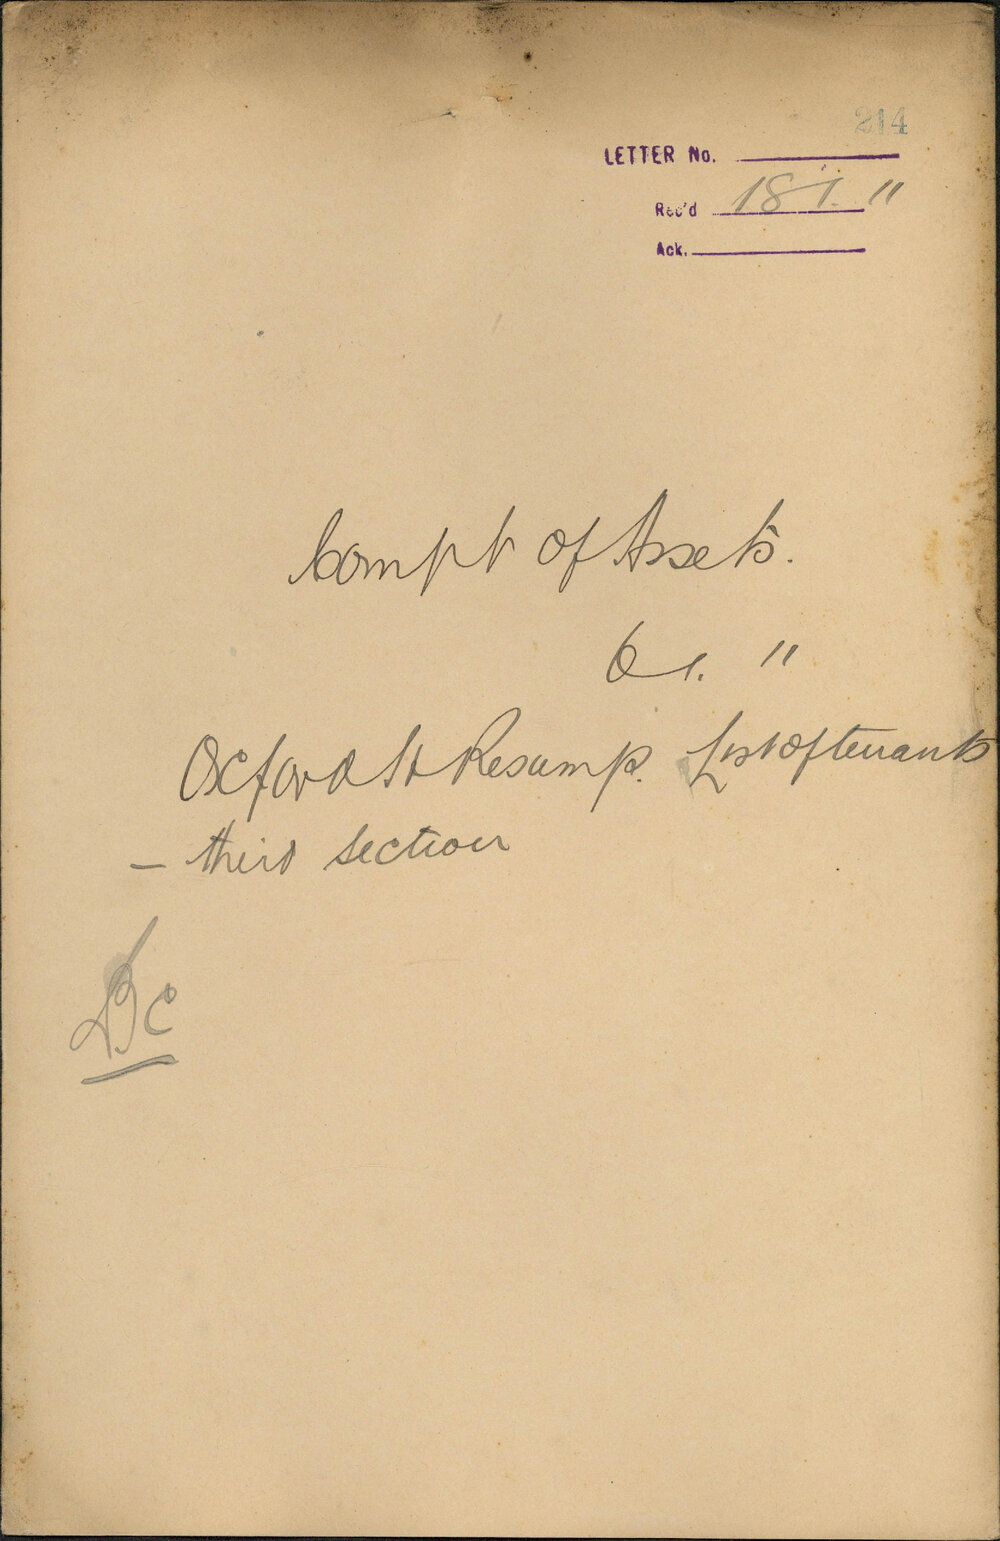 214
LETTER No.
Rec'd 18 1. 11
Ack.
Compt of Assets.
6 1. 11
Oxford St Resump. List of tenants
— third section